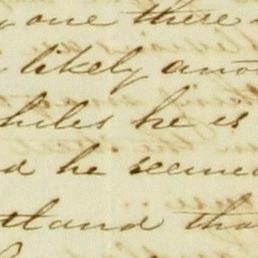 one there
likely ano
hiles he is
d he seeme
tland tha